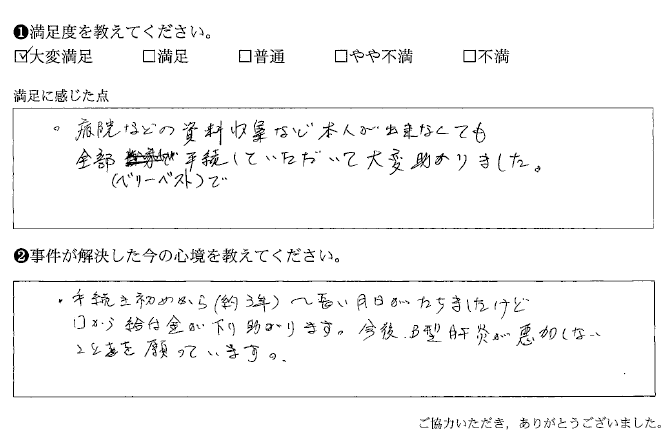 ❶満足度を教えてください。
☑大変満足 □満足 □普通 □やや不満 □不満
満足に感じた点
。病院などの資料収集など本人が出来なくても
全部 手続していただいて大変助かりました。
(ベリーベスト)で
❷事件が解決した今の心境を教えてください。
・手続き初めから(約3年)〜長い月日がたちましたけど
国から給付金が下り助かります。今後、B型肝炎が悪加しない
ことを願っています。
ご協力いただき，ありがとうございました。